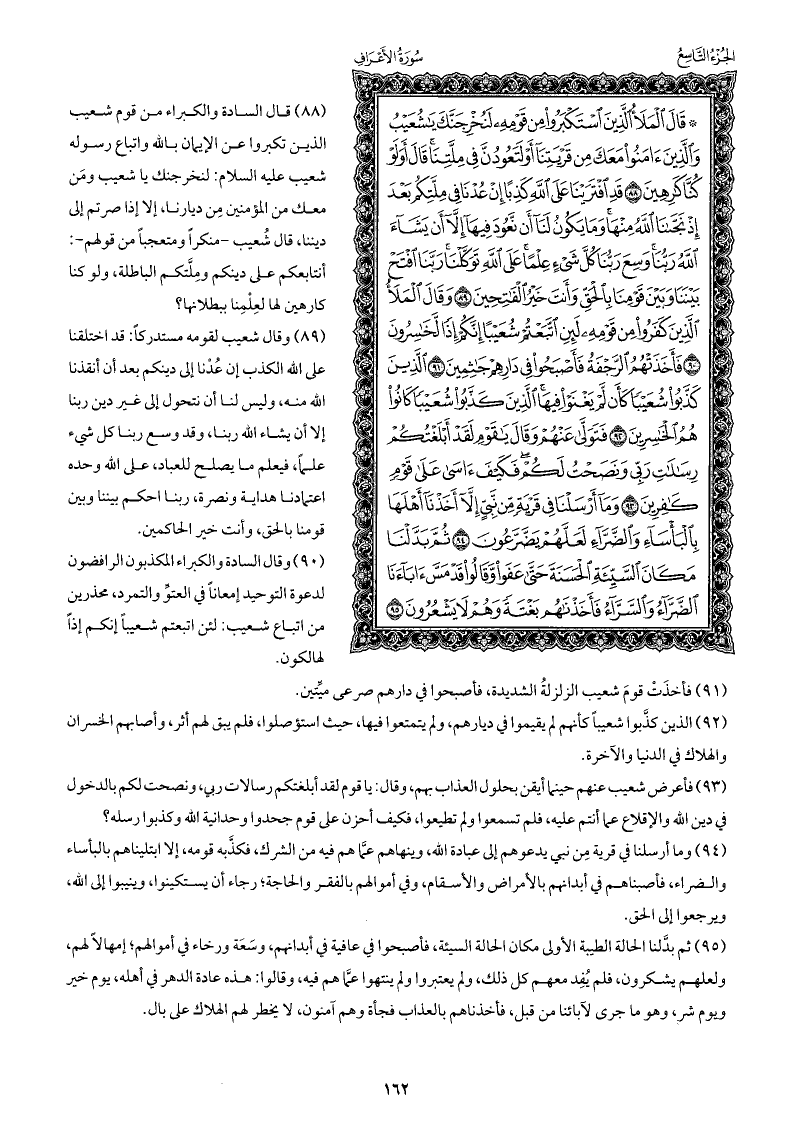 الجزء التاسع
سورة الأعراف
* قَالَ ٱلْمَلَأُ ٱلَّذِينَ ٱسْتَكْبَرُوا۟ مِن قَوْمِهِۦ لَنُخْرِجَنَّكَ يَـٰشُعَيْبُ
وَٱلَّذِينَ ءَامَنُوا۟ مَعَكَ مِن قَرْيَتِنَآ أَوْ لَتَعُودُنَّ فِى مِلَّتِنَا ۚ قَالَ أَوَلَوْ
كُنَّا كَـٰرِهِينَ ٨٨ قَدِ ٱفْتَرَيْنَا عَلَى ٱللَّهِ كَذِبًا إِنْ عُدْنَا فِى مِلَّتِكُم بَعْدَ
إِذْ نَجَّىٰنَا ٱللَّهُ مِنْهَا ۚ وَمَا يَكُونُ لَنَآ أَن نَّعُودَ فِيهَآ إِلَّآ أَن يَشَآءَ
ٱللَّهُ رَبُّنَا ۚ وَسِعَ رَبُّنَا كُلَّ شَىْءٍ عِلْمًا ۚ عَلَى ٱللَّهِ تَوَكَّلْنَا ۚ رَبَّنَا ٱفْتَحْ
بَيْنَنَا وَبَيْنَ قَوْمِنَا بِٱلْحَقِّ وَأَنتَ خَيْرُ ٱلْفَـٰتِحِينَ ٨٩ وَقَالَ ٱلْمَلَأُ
ٱلَّذِينَ كَفَرُوا۟ مِن قَوْمِهِۦ لَئِنِ ٱتَّبَعْتُمْ شُعَيْبًا إِنَّكُمْ إِذًا لَّخَـٰسِرُونَ
٩٠ فَأَخَذَتْهُمُ ٱلرَّجْفَةُ فَأَصْبَحُوا۟ فِى دَارِهِمْ جَـٰثِمِينَ ٩١ ٱلَّذِينَ
كَذَّبُوا۟ شُعَيْبًا كَأَن لَّمْ يَغْنَوْا۟ فِيهَا ۚ ٱلَّذِينَ كَذَّبُوا۟ شُعَيْبًا كَانُوا۟
هُمُ ٱلْخَـٰسِرِينَ ٩٢ فَتَوَلَّىٰ عَنْهُمْ وَقَالَ يَـٰقَوْمِ لَقَدْ أَبْلَغْتُكُمْ
رِسَـٰلَـٰتِ رَبِّى وَنَصَحْتُ لَكُمْ ۖ فَكَيْفَ ءَاسَىٰ عَلَىٰ قَوْمٍ
كَـٰفِرِينَ ٩٣ وَمَآ أَرْسَلْنَا فِى قَرْيَةٍ مِّن نَّبِىٍّ إِلَّآ أَخَذْنَآ أَهْلَهَا
بِٱلْبَأْسَآءِ وَٱلضَّرَّآءِ لَعَلَّهُمْ يَضَّرَّعُونَ ٩٤ ثُمَّ بَدَّلْنَا
مَكَانَ ٱلسَّيِّئَةِ ٱلْحَسَنَةَ حَتَّىٰ عَفَوا۟ وَّقَالُوا۟ قَدْ مَسَّ ءَابَآءَنَا
ٱلضَّرَّآءُ وَٱلسَّرَّآءُ فَأَخَذْنَـٰهُم بَغْتَةً وَهُمْ لَا يَشْعُرُونَ ٩٥
(٨٨) قال السادة والكبراء من قوم شعيب
الذين تكبروا عن الإيمان بالله واتباع رسوله
شعيب عليه السلام: لنخرجنك يا شعيب ومَن
معك من المؤمنين مِن ديارنا، إلا إذا صرتم إلى
ديننا، قال شُعيب -منكراً ومتعجباً من قولهم-:
أنتابعكم على دينكم ومِلَّتكم الباطلة، ولو كنا
كارهين لها لعِلْمِنا ببطلانها؟
(٨٩) وقال شعيب لقومه مستدركاً: قد اختلقنا
على الله الكذب إن عُدْنا إلى دينكم بعد أن أنقذنا
الله منه، وليس لنا أن نتحول إلى غير دين ربنا
إلا أن يشاء الله ربنا، وقد وسع ربنا كل شيء
علماً، فيعلم ما يصلح للعباد، على الله وحده
اعتمادنا هداية ونصرة، ربنا احكم بيننا وبين
قومنا بالحق، وأنت خير الحاكمين.
(٩٠) وقال السادة والكبراء المكذبون الرافضون
لدعوة التوحيد إمعاناً في العتوِّ والتمرد، محذرين
من اتباع شعيب: لئن اتبعتم شعيباً إنكم إذاً
لهالكون.
(٩١) فأخذَتْ قومَ شعيب الزلزلةُ الشديدة، فأصبحوا في دارهم صرعى ميِّتين.
(٩٢) الذين كذَّبوا شعيباً كأنهم لم يقيموا في ديارهم، ولم يتمتعوا فيها، حيث استؤصلوا، فلم يبق لهم أثر، وأصابهم الخسران
والهلاك في الدنيا والآخرة.
(٩٣) فأعرض شعيب عنهم حينما أيقن بحلول العذاب بهم، وقال: يا قوم لقد أبلغتكم رسالات ربي، ونصحت لكم بالدخول
في دين الله والإقلاع عما أنتم عليه، فلم تسمعوا ولم تطيعوا، فكيف أحزن على قوم جحدوا وحدانية الله وكذبوا رسله؟
(٩٤) وما أرسلنا في قرية مِن نبي يدعوهم إلى عبادة الله، وينهاهم عمَّا هم فيه من الشرك، فكذَّبه قومه، إلا ابتليناهم بالبأساء
والضراء، فأصبناهم في أبدانهم بالأمراض والأسقام، وفي أموالهم بالفقر والحاجة؛ رجاء أن يستكينوا، وينيبوا إلى الله،
ويرجعوا إلى الحق.
(٩٥) ثم بدَّلنا الحالة الطيبة الأولى مكان الحالة السيئة، فأصبحوا في عافية في أبدانهم، وسَعَة ورخاء في أموالهم؛ إمهالاً لهم،
ولعلهم يشكرون، فلم يُفِد معهم كل ذلك، ولم يعتبروا ولم ينتهوا عمَّا هم فيه، وقالوا: هذه عادة الدهر في أهله، يوم خير
ويوم شر، وهو ما جرى لآبائنا من قبل، فأخذناهم بالعذاب فجأة وهم آمنون، لا يخطر لهم الهلاك على بال.
١٦٢